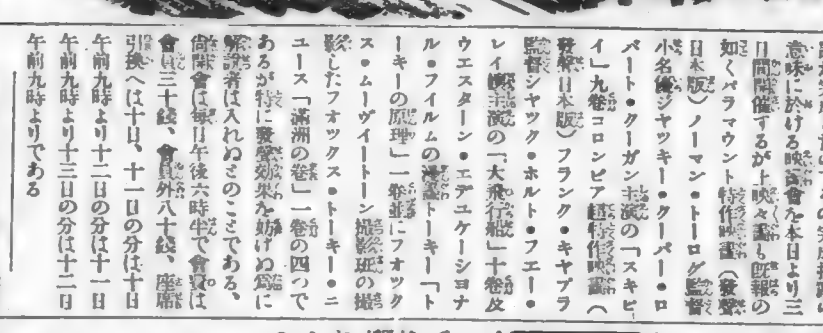 意味に於ける映画會を本日より三
日間開催するが上映々畫も既報の
如くパラマウント特作映畫（發聲
日本版）ノーマン・トーログ監督
小名優ジヤツキー・クーパー・ロ
バート・クーガン主演の「スキピ
イ」九卷コロンビア超特作映畫（
發聲日本版）フランク・キヤプラ
監督ジヤツク・ホルト・フエー・
レイ孃主演の「大飛行船」十卷及
ウエスターン・エデユケーシヨナ
ル・フイルムの漫畫トーキー「ト
ーキーの原理」一卷並にフオツク
ス・ムーヴイートーン撮影班の撮
影したフオツクス・トーキー・ニ
ユース「滿洲の卷」一卷の四つで
あるが特に發聲効果を妨げぬ爲に
解說者は入れぬとのことである、
尙開會は毎日午後六時半で會費は
會員三十錢、會員外八十錢、座席
引換へは十日、十一日の分は十日
午前九時より十二日の分は十一日
午前九時より十三日の分は十二日
午前九時よりである